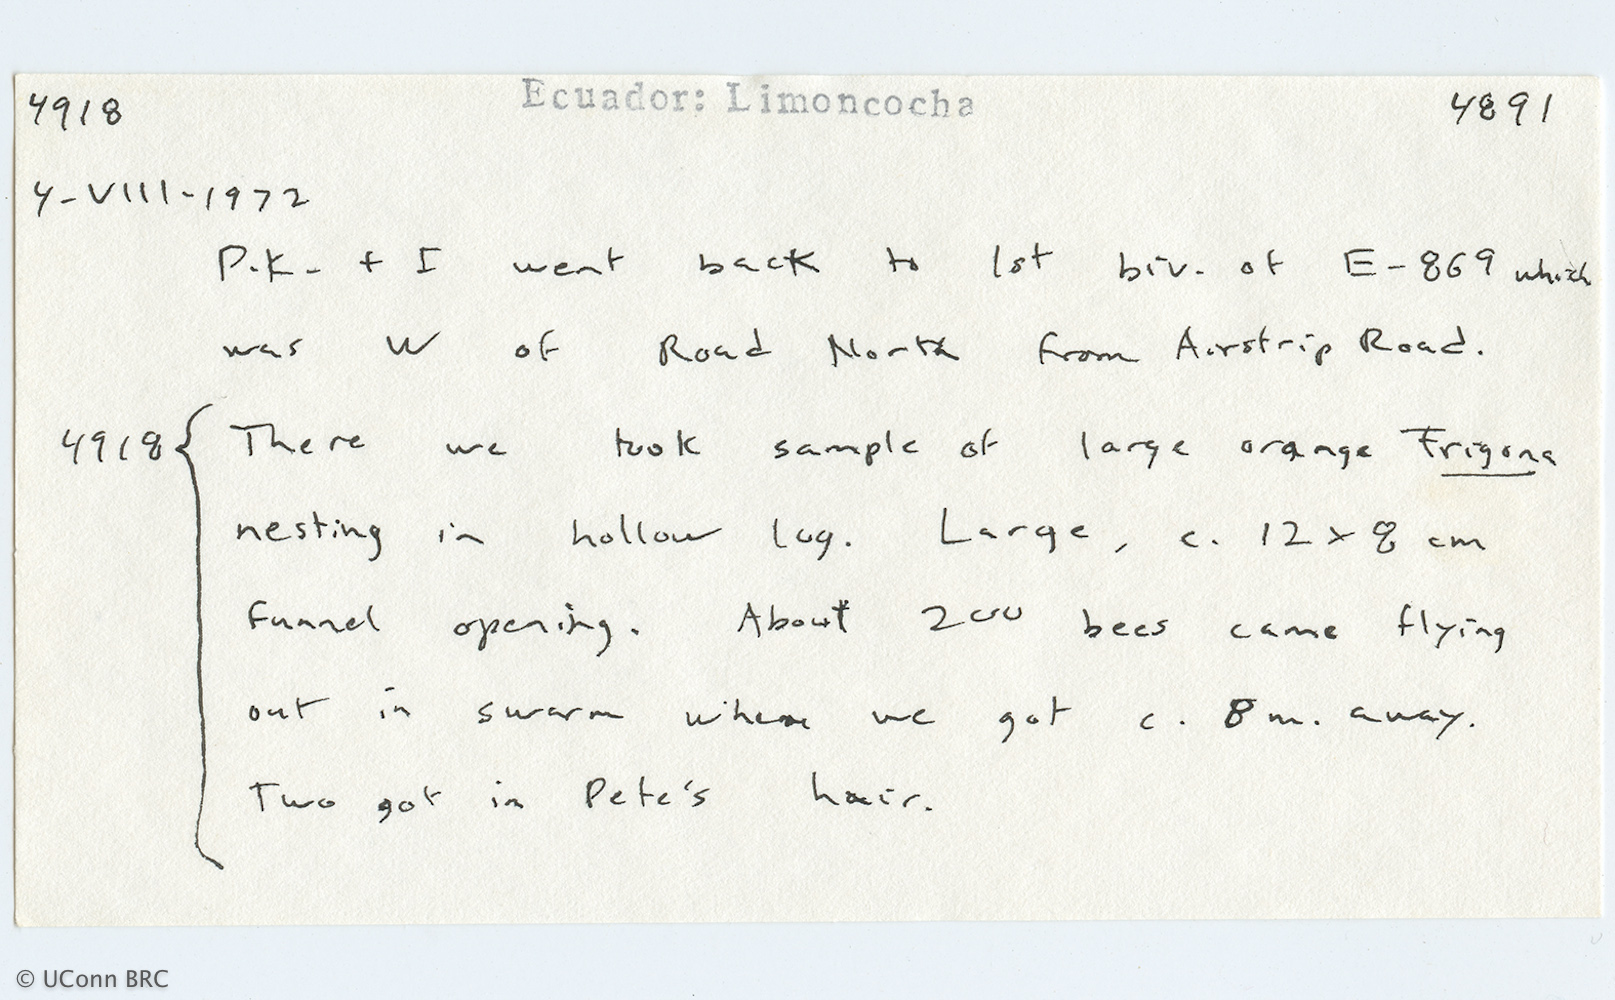 4918 Ecuador: Limoncocha 4891
4-VIII-1972
P.K. + I went back to 1st biv. of E-869 which
was W of Road North from Airstrip Road.
4918 { There we took sample of large orange Trigona
nesting in hollow log. Large, c. 12 x 8 cm
funnel opening. About 200 bees came flying
out in swarm when we got c. 8 m. away.
Two got in Pete's hair.
© UConn BRC